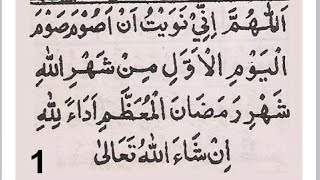 اَللّٰهُمَّ اِنِّيْ نَوَيْتُ اَنْ اَصُوْمَ صَوْمَ
الْيَوْمِ الْاَوَّلِ مِنْ شَهْرِ اللهِ
شَهْرِ رَمَضَانَ الْمُعَظَّمِ اَدَاءً لِلّٰهِ
اِنْ شَاءَ اللهُ تَعَالٰى
1